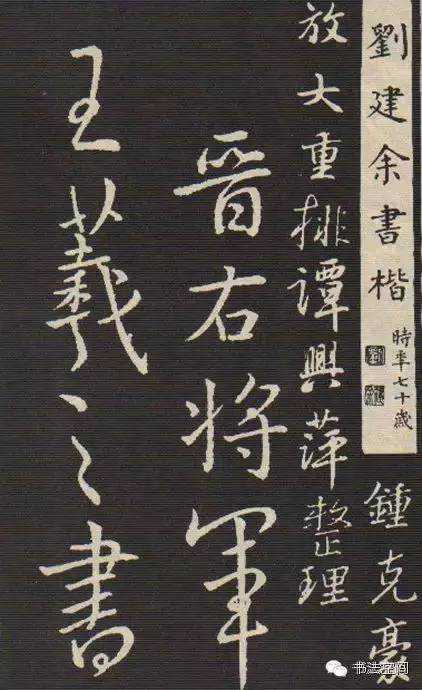 劉建余書楷
時年七十歲
鍾克豪
放大重排譚興萍整理
晋右将軍
王羲之書
书法空间